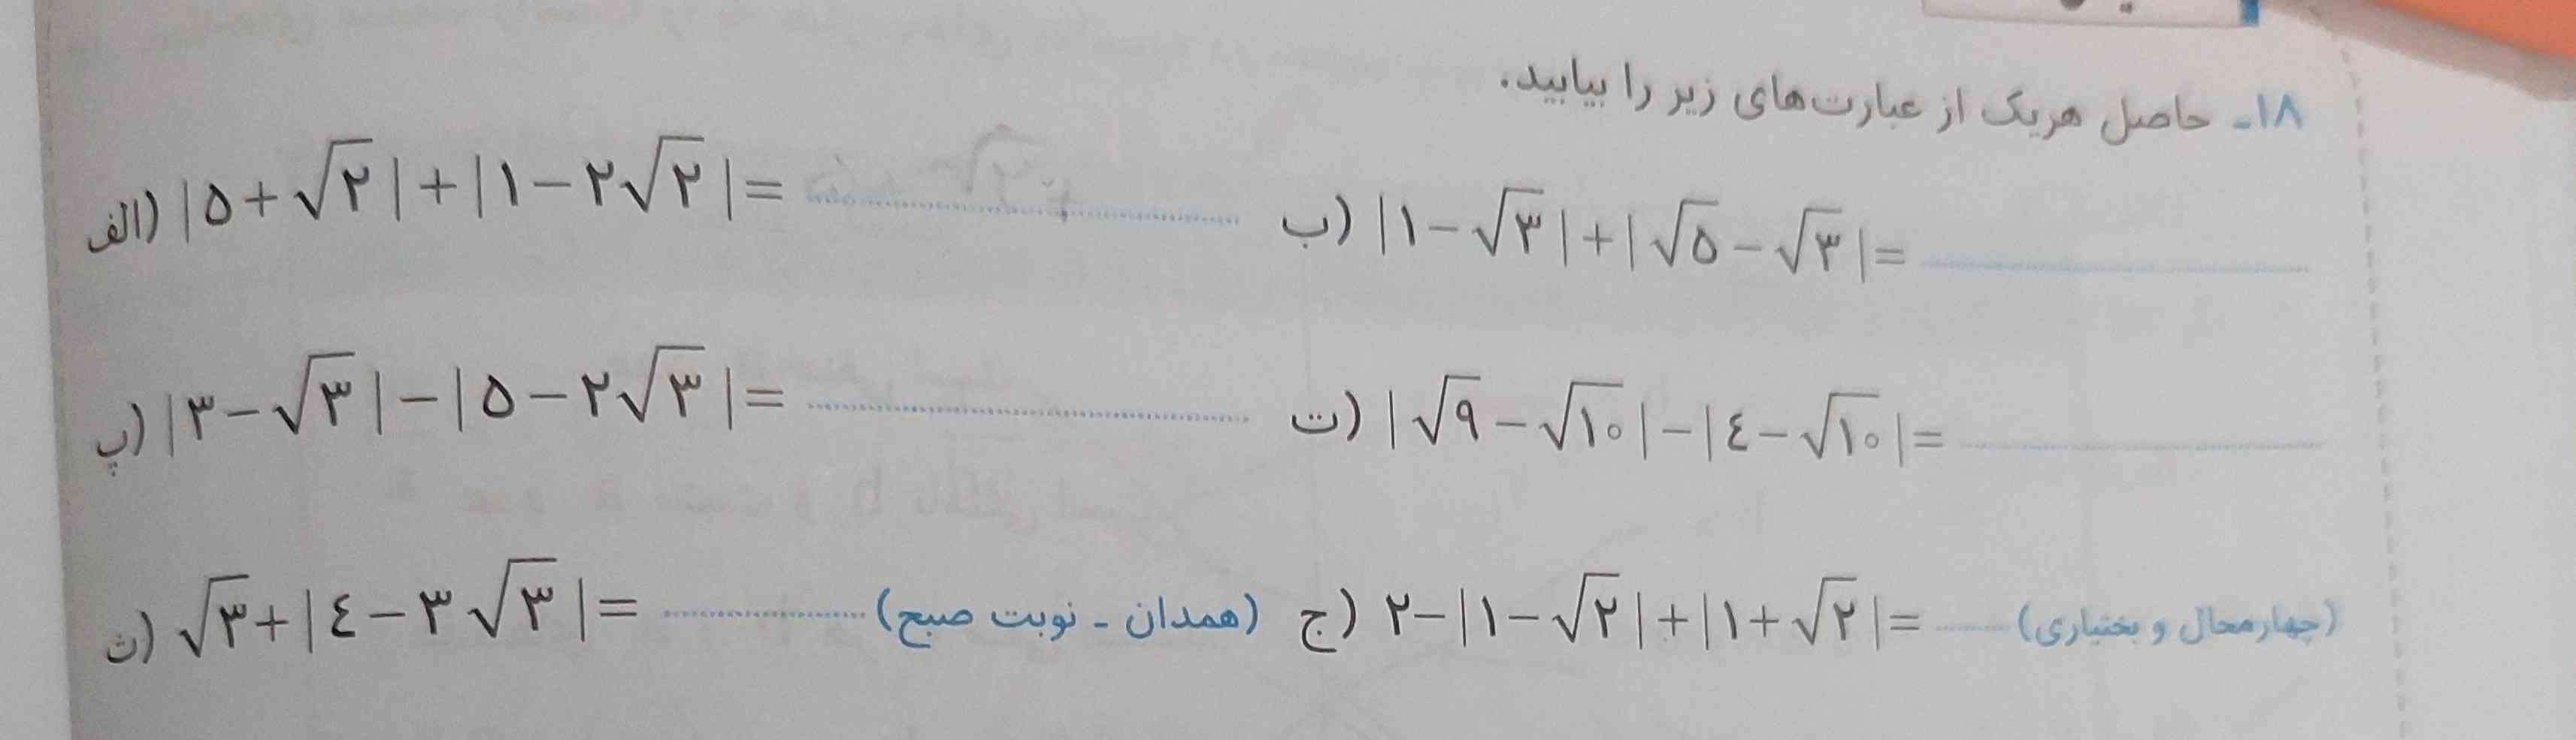 ۱۸- حاصل هریک از عبارت‌های زیر را بیابید.
الف) |۵+√۲|+|۱-۲√۲|= ب) |۱-√۳|+|√۵-√۳|=
پ) |۳-√۳|-|۵-۲√۳|= ت) |√۹-√۱۰|-|٤-√۱۰|=
ث) √۳+|٤-۳√۳|= (همدان - نوبت صبح) ج) ۲-|۱-√۲|+|۱+√۲|= (چهارمحال و بختیاری)